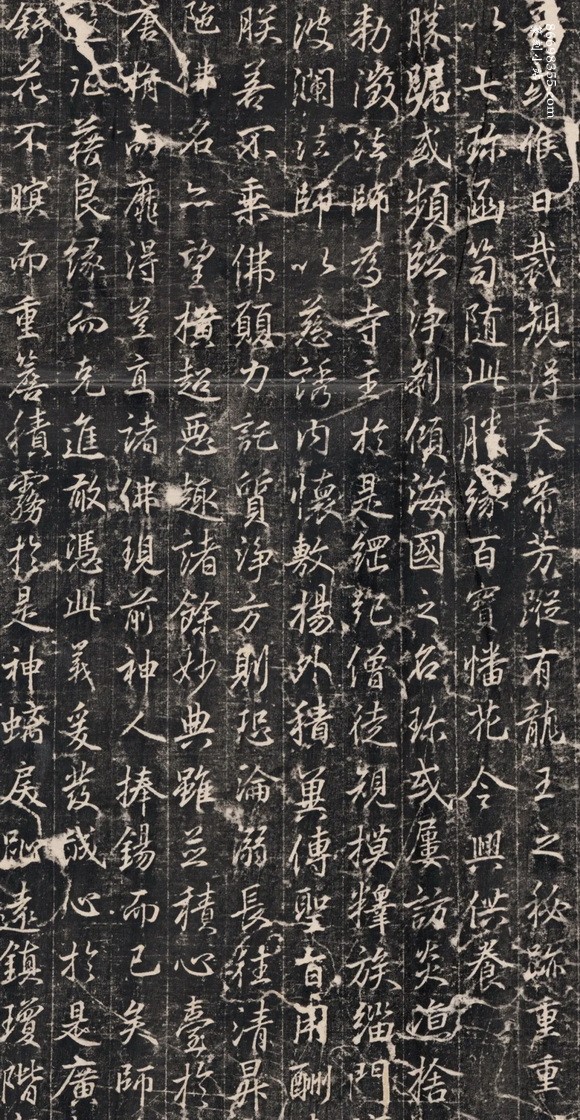 或候日裁規得天帝芳蹤有龍王之秘跡重重
以七珎函笥随此勝緣百寳幡花令興供養
勝躅或頻臨淨剎傾海國之名珎或屢訪炎捨
勅徵法師為寺主於是綱紀僧徒規摸釋族緇門
波瀾法師以慈誘內懷敷揚外積冀傳聖旨用酬
朕善不乘佛願力託質淨方則恐淪溺長往清昇
陁佛名亦望橫超惡趣諸餘妙典雖並積心臺於
唐捐而靡得豈直諸佛現前神人捧錫而已矣師
藉良緣而克進敢憑此義爰發誠心於是廣
舒花不瞑而重簷積霧於是神螭戾趾遠鎮瓊階